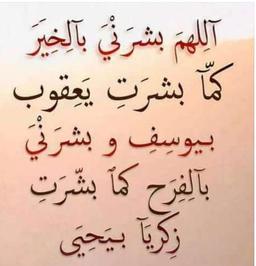 آللهمَ بشرَنْيَ بآلخِيَر
كمّآ بشرَتِ يَعِقوب
بيوسِفِ و بشرَنْيَ
بآلِفِرح كمآ بشّرَتِ
زِكريَآ بيَحيَى